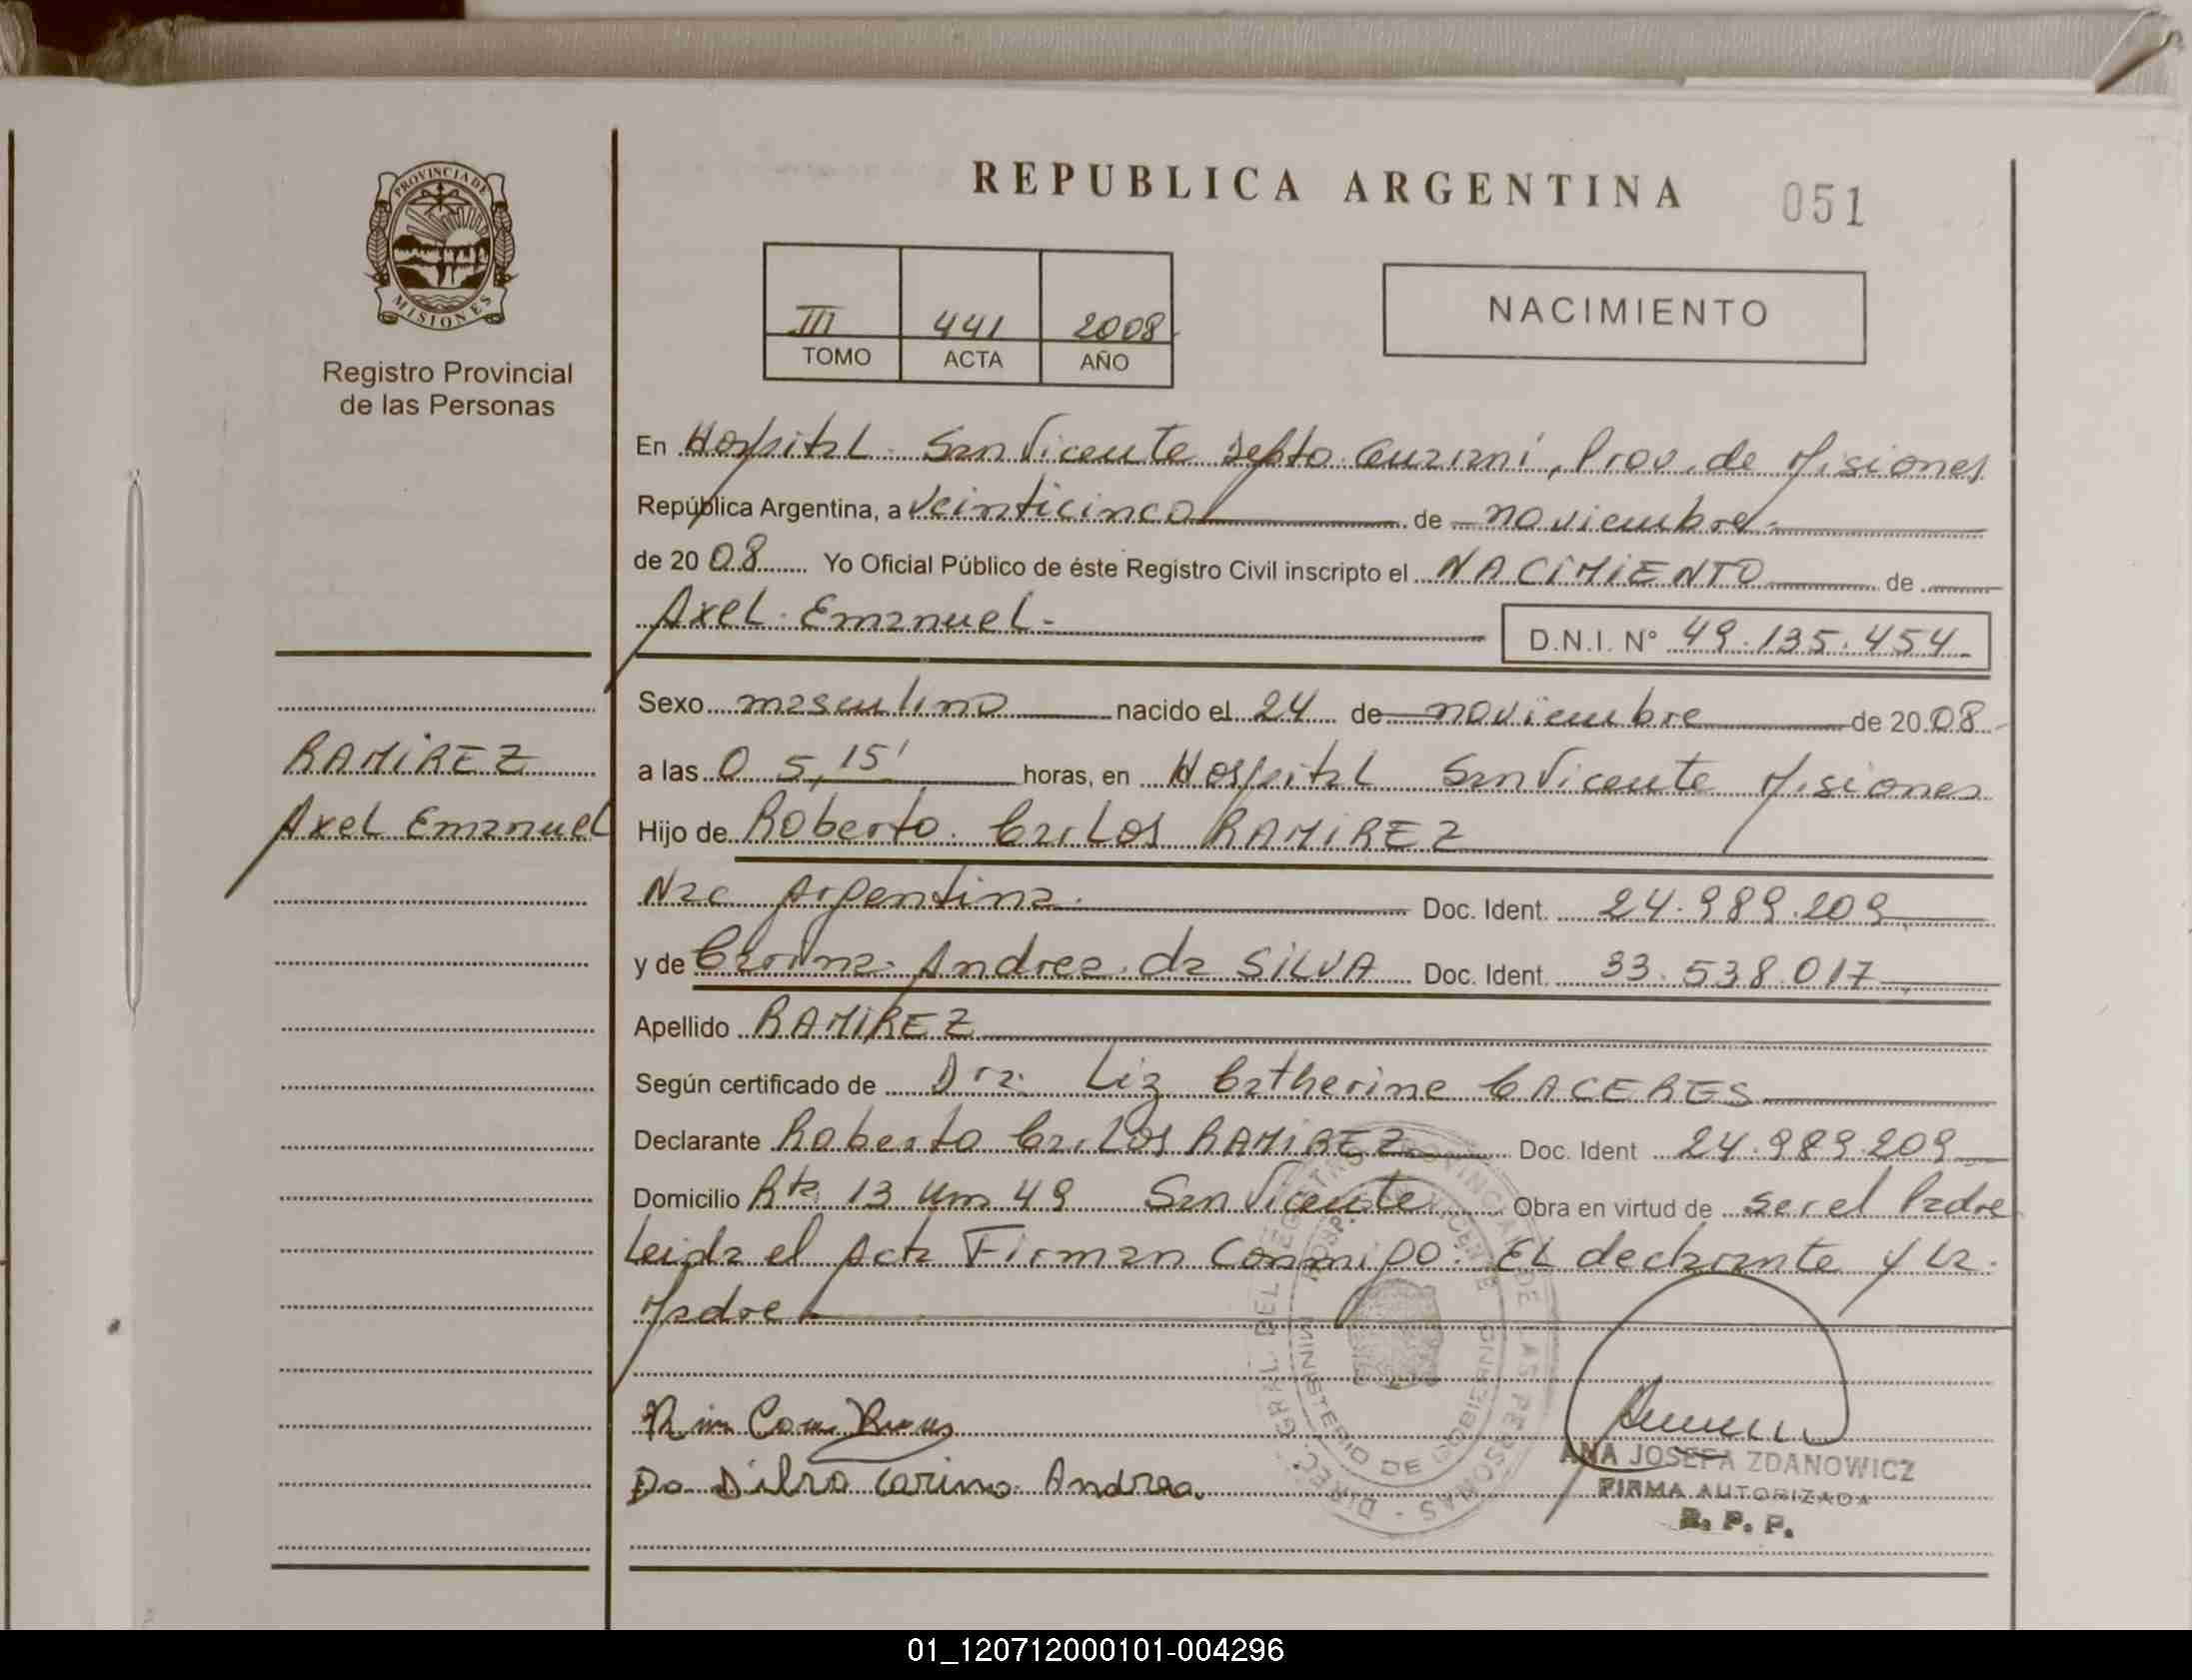 REPUBLICA ARGENTINA 051
PROVINCIA DE
MISIONES
Registro Provincial
de las Personas
III 441 2008
TOMO ACTA AÑO
NACIMIENTO
En Hospital San Vicente Depto Guarani, Prov. de Misiones
República Argentina, a veinticinco de noviembre
de 20 08 Yo Oficial Público de éste Registro Civil inscripto el NACIMIENTO de
Axel Emanuel
D.N.I. N° 49.135.454
Sexo masculino nacido el 24 de noviembre de 20 08
RAMIREZ
Axel Emanuel
a las 05,15' horas, en Hospital San Vicente Misiones
Hijo de Roberto Carlos RAMIREZ
Nac Argentina. Doc. Ident. 24.989.209
y de Carina Andrea da SILVA Doc. Ident. 33.538.017
Apellido RAMIREZ
Según certificado de Dra. Liz Catherine CACERES
Declarante Roberto Carlos RAMIREZ Doc. Ident 24.989.209
Domicilio Rta 13 Km 49 San Vicente Obra en virtud de ser el Padre
Leida el Acta Firman Conmigo: EL declarante y La
Madre
Da Silva Carina Andrea.
DIREC. GRAL. DEL REGISTRO PROVINCIAL DE LAS PERSONAS
MINISTERIO DE GOBIERNO
HOSP. S. VICENTE
ANA JOSEFA ZDANOWICZ
FIRMA AUTORIZADA
R. P. P.
01_120712000101-004296